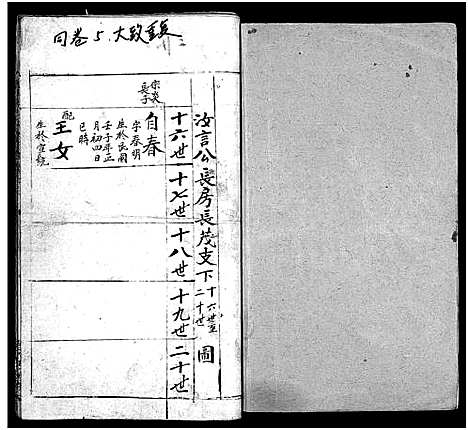 汝言公長房長茂支下十六世至二十世圖
十六世 十七世 十八世 十九世 二十世
長子
自春
字春明
生於民國
壬子年正
月初四日
巳時
配
王女
生於宣統